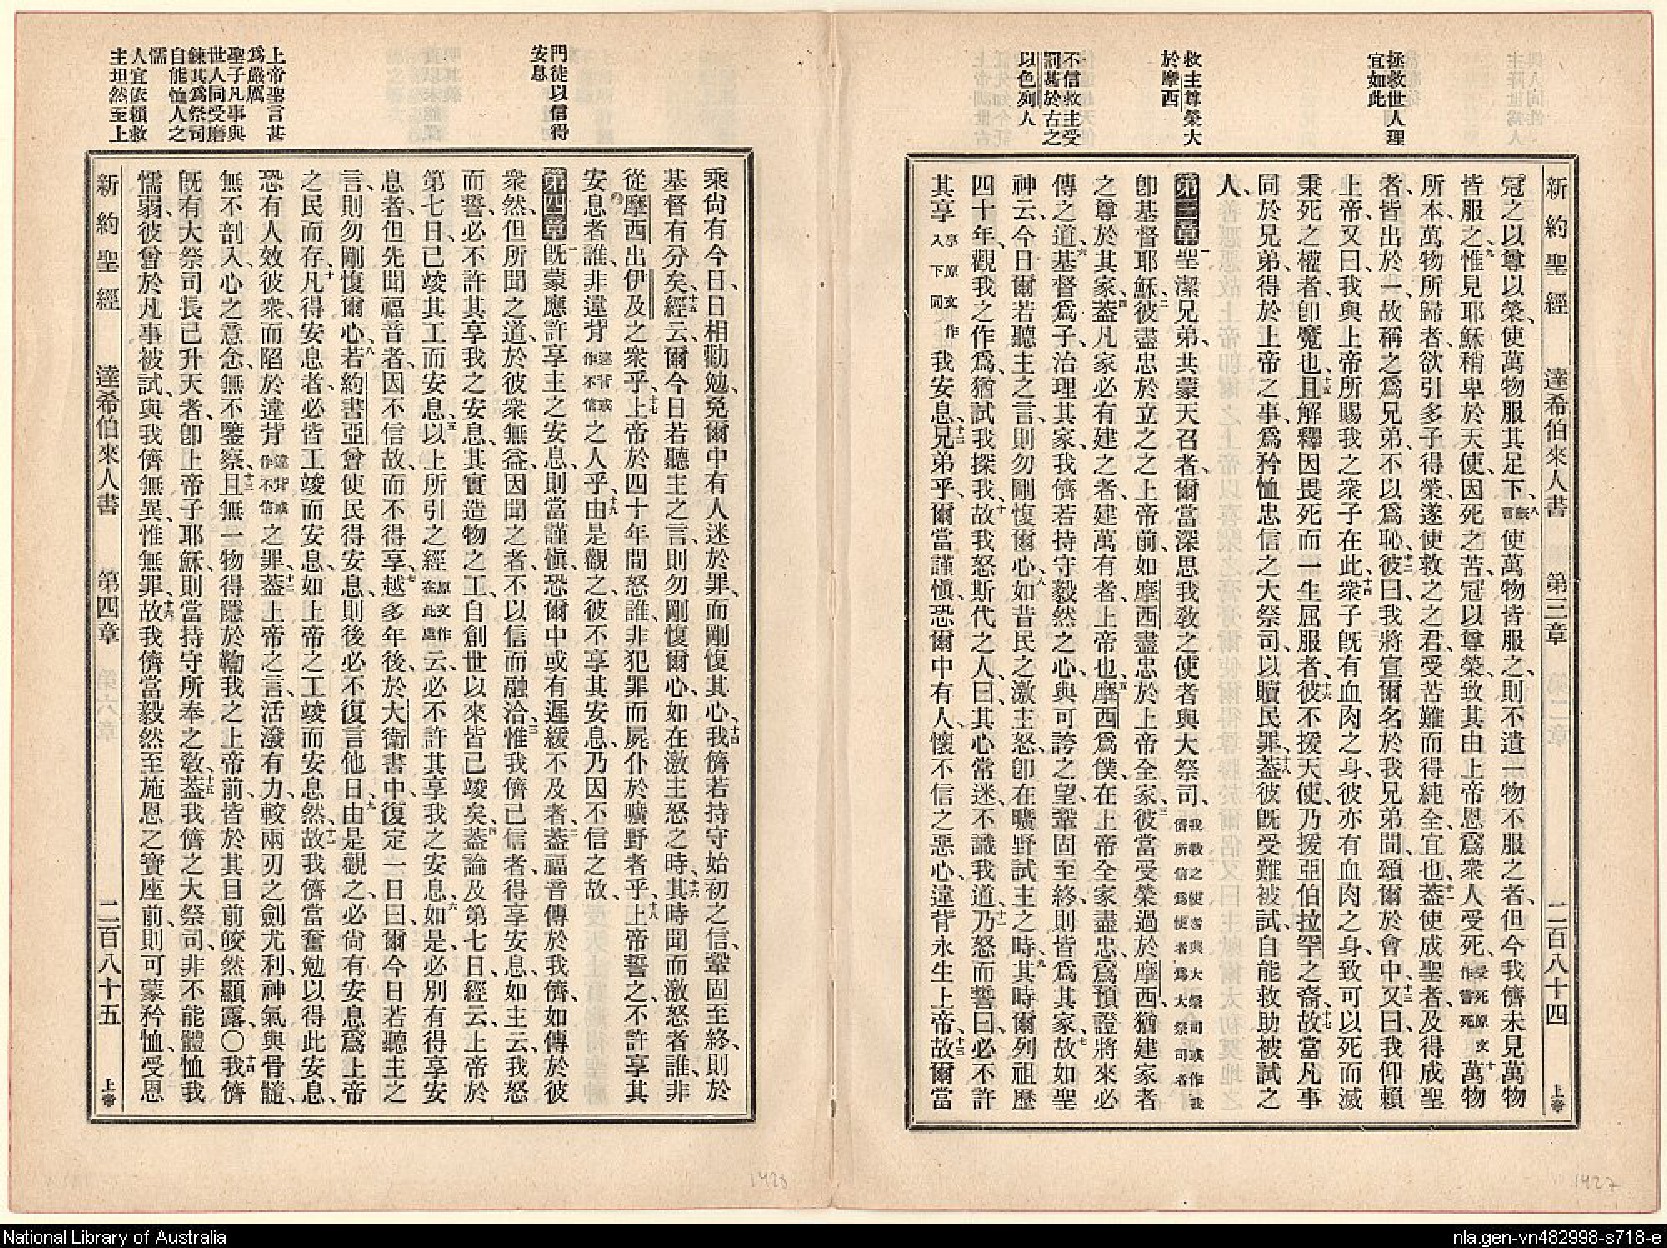 新約聖經 達希伯來人書 第二章 二百八十四 上帝
拯救世人理
宜如此
救主尊榮大
於摩西
不信救主受
罰甚於古之
以色列人
冠之以尊以榮、使萬物服其足下、八既言使萬物皆服之、則不遺一物不服之者、但今我儕未見萬物
皆服之、九惟見耶穌稍卑於天使、因死之苦、冠以尊榮、致其由上帝恩、爲衆人受死、受死原文作嘗死十萬物
所本、萬物所歸者、欲引多子得榮、遂使救之之君、受苦難而得純全、宜也、十一蓋使成聖者、及得成聖
者、皆出於一、故稱之爲兄弟、不以爲恥、十二彼曰、我將宣爾名於我兄弟間、頌爾於會中、十三又曰、我仰賴
上帝、又曰、我與上帝所賜我之衆子在此、十四衆子旣有血肉之身、彼亦有血肉之身、致可以死而滅
秉死之權者、卽魔也、十五且解釋因畏死而一生屈服者、十六彼不援天使、乃援亞伯拉罕之裔、十七故當凡事
同於兄弟、得於上帝之事、爲矜恤忠信之大祭司、以贖民罪、十八蓋彼旣受難被試、自能救助被試之
人、
第三章一聖潔兄弟、共蒙天召者、爾當深思我敎之使者與大祭司、我敎之使者與大祭司或作我儕所信爲使者爲大祭司者
卽基督耶穌、二彼盡忠於立之之上帝前、如摩西盡忠於上帝全家、三彼當受榮過於摩西、猶建家者
之尊於其家、四蓋凡家必有建之之者、建萬有者、上帝也、五摩西爲僕、在上帝全家盡忠、爲預證將來必
傳之道、六基督爲子、治理其家、我儕若持守毅然之心、與可誇之望、鞏固至終、則皆爲其家、七故如聖
神云、今日爾若聽主之言、八則勿剛愎爾心、如昔民之激主怒、卽在曠野試主之時、九其時爾列祖歷
四十年、觀我之作爲、猶試我探我、十故我怒斯代之人曰、其心常迷、不識我道、十一乃怒而誓曰、必不許
其享享原文作入下同我安息、十二兄弟乎、爾當謹愼、恐爾中有人、懷不信之惡心、違背永生上帝、十三故爾當
門徒以信得
安息
上帝聖言甚
爲嚴厲
聖子凡事與
世人同受磨
鍊其爲祭司
自能恤人之
懦
人宜依賴救
主坦然至上
乘尙有今日、日相勸勉、免爾中有人迷於罪、而剛愎其心、十四我儕若持守始初之信、鞏固至終、則於
基督有分矣、十五經云、爾今日若聽主之言、則勿剛愎爾心、如在激主怒之時、十六其時聞而激怒者誰、非
從摩西出伊及之衆乎、十七上帝於四十年間怒誰、非犯罪而屍仆於曠野者乎、十八上帝誓之、不許享其
安息者誰、非違背違背或作不信之人乎、十九由是觀之、彼不享其安息、乃因不信之故、
第四章一旣蒙應許、享主之安息、則當謹愼、恐爾中或有遲緩不及者、二蓋福音傳於我儕、如傳於彼
衆然、但所聞之道、於彼衆無益、因聞之者、不以信而融洽、三惟我儕已信者、得享安息、如主云、我怒
而誓、必不許其享我之安息、其實造物之工、自創世以來皆已竣矣、四蓋論及第七日、經云、上帝於
第七日已竣其工而安息、五以上所引之經、原文作在此處云、必不許其享我之安息、六如是、必別有得享安
息者、但先聞福音者、因不信故、而不得享、七越多年後、於大衛書中、復定一日曰、爾今日若聽主之
言、則勿剛愎爾心、八若約書亞曾使民得安息、則後必不復言他日、九由是觀之、必尙有安息爲上帝
之民而存、十凡得安息者、必皆工竣而安息、如上帝之工竣而安息然、十一故我儕當奮勉以得此安息、
恐有人效彼衆、而陷於違背違背或作不信之罪、十二蓋上帝之言、活潑有力、較兩刃之劍尤利、神氣與骨髓、
無不剖入、心之意念、無不鑒察、十三且無一物得隱於鞫我之上帝前、皆於其目前皎然顯露、〇十四我儕
旣有大祭司長已升天者、卽上帝子耶穌、則當持守所奉之敎、十五蓋我儕之大祭司、非不能體恤我
懦弱、彼曾於凡事被試、與我儕無異、惟無罪、十六故我儕當毅然至施恩之寶座前、則可蒙矜恤、受恩
新約聖經 達希伯來人書 第四章 二百八十五 上帝
1428
1427
National Library of Australia
nla.gen-vn482998-s718-e